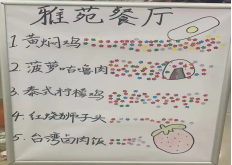 雅苑餐厅
1. 黄焖鸡
2. 菠萝古噜肉
3. 泰式柠檬鸡
4. 红烧狮子头
5. 台湾卤肉饭